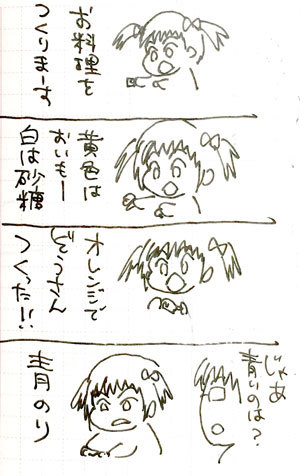 お料理を
つくりまーす
黄色は
おいもー
白は砂糖
オレンジで
ぞうさん
つくった!!
じゃあ
青いのは?
青のり